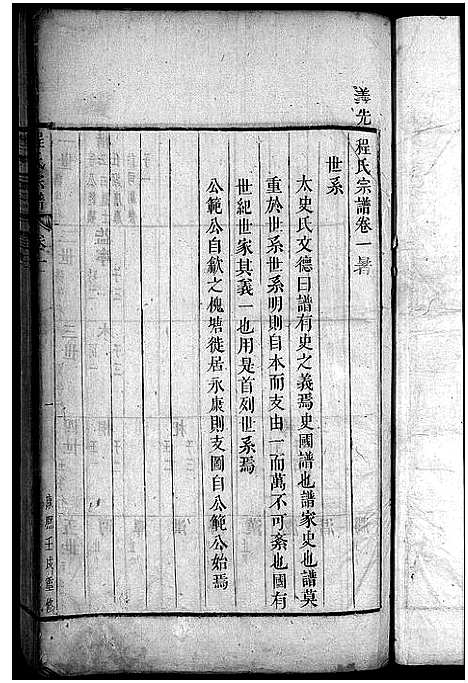 程氏宗譜卷一
世系
太史氏文德曰譜有史之義焉史國譜也譜家史也譜莫
重於世系世系明則自本而支由一而萬不可紊也國有
世紀世家其義一也用是首列世系焉
公範公自歙之槐塘徙居永康則支圖自公範公始焉
程氏宗譜
卷一
一
康熙壬戌重修